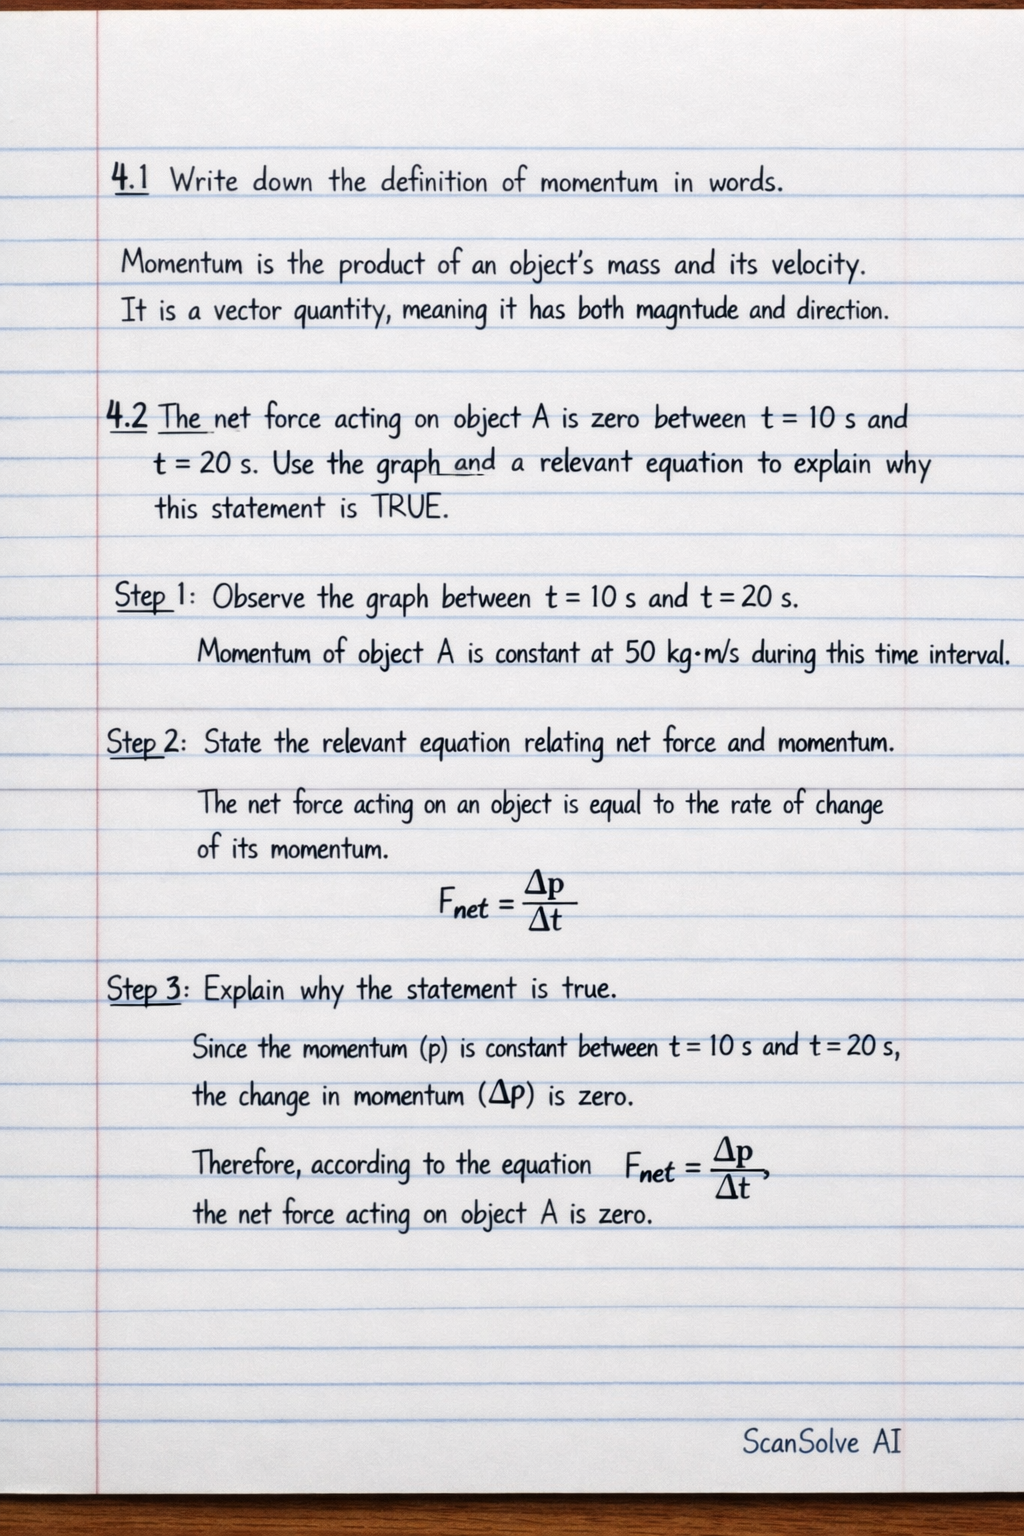 4.1 Write down the definition of momentum in words.
Momentum is the product of an object's mass and its velocity.
It is a vector quantity, meaning it has both magntude and direction.
4.2 The net force acting on object A is zero between t = 10 s and
t = 20 s. Use the graph and a relevant equation to explain why
this statement is TRUE.
Step 1: Observe the graph between t = 10 s and t = 20 s.
Momentum of object A is constant at 50 kg·m/s during this time interval.
Step 2: State the relevant equation relating net force and momentum.
The net force acting on an object is equal to the rate of change
of its momentum.
Fnet = Δp/Δt
Step 3: Explain why the statement is true.
Since the momentum (p) is constant between t = 10 s and t = 20 s,
the change in momentum (Δp) is zero.
Therefore, according to the equation Fnet = Δp/Δt,
the net force acting on object A is zero.
ScanSolve AI